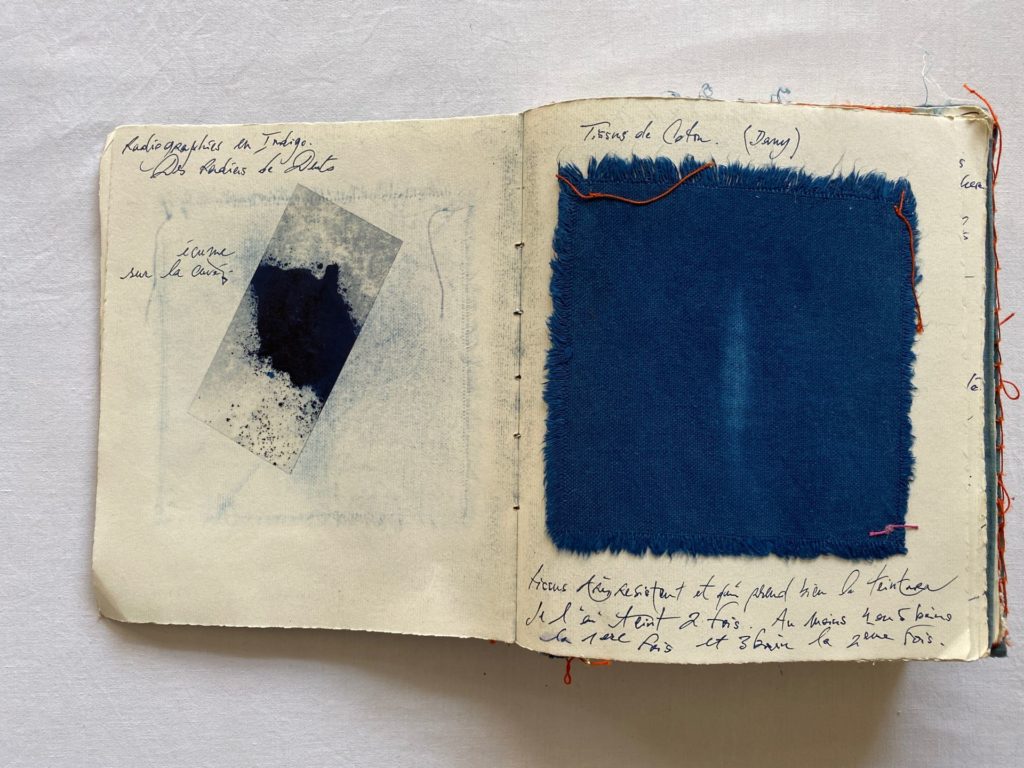 Radiographies en Indigo.
Des Radiers de
écume
sur la
Tissus de Coton. (Dany)
tissus très resistent et qui prend bien la teinture
Je l'ai teint 2 fois. Au moins 4 ou 5 bains
la 1ere fois et 3 bain la 2eme fois.